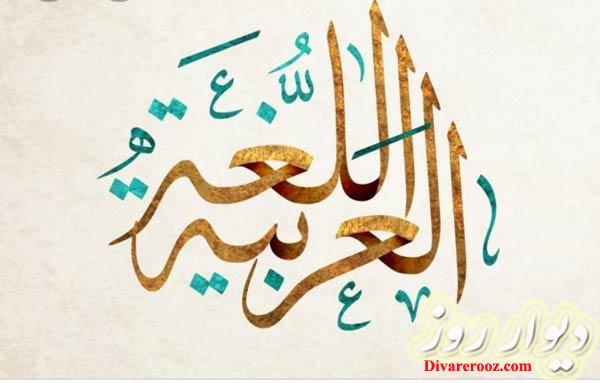 اللغة
العربية
دیوار روز
Divarerooz.com